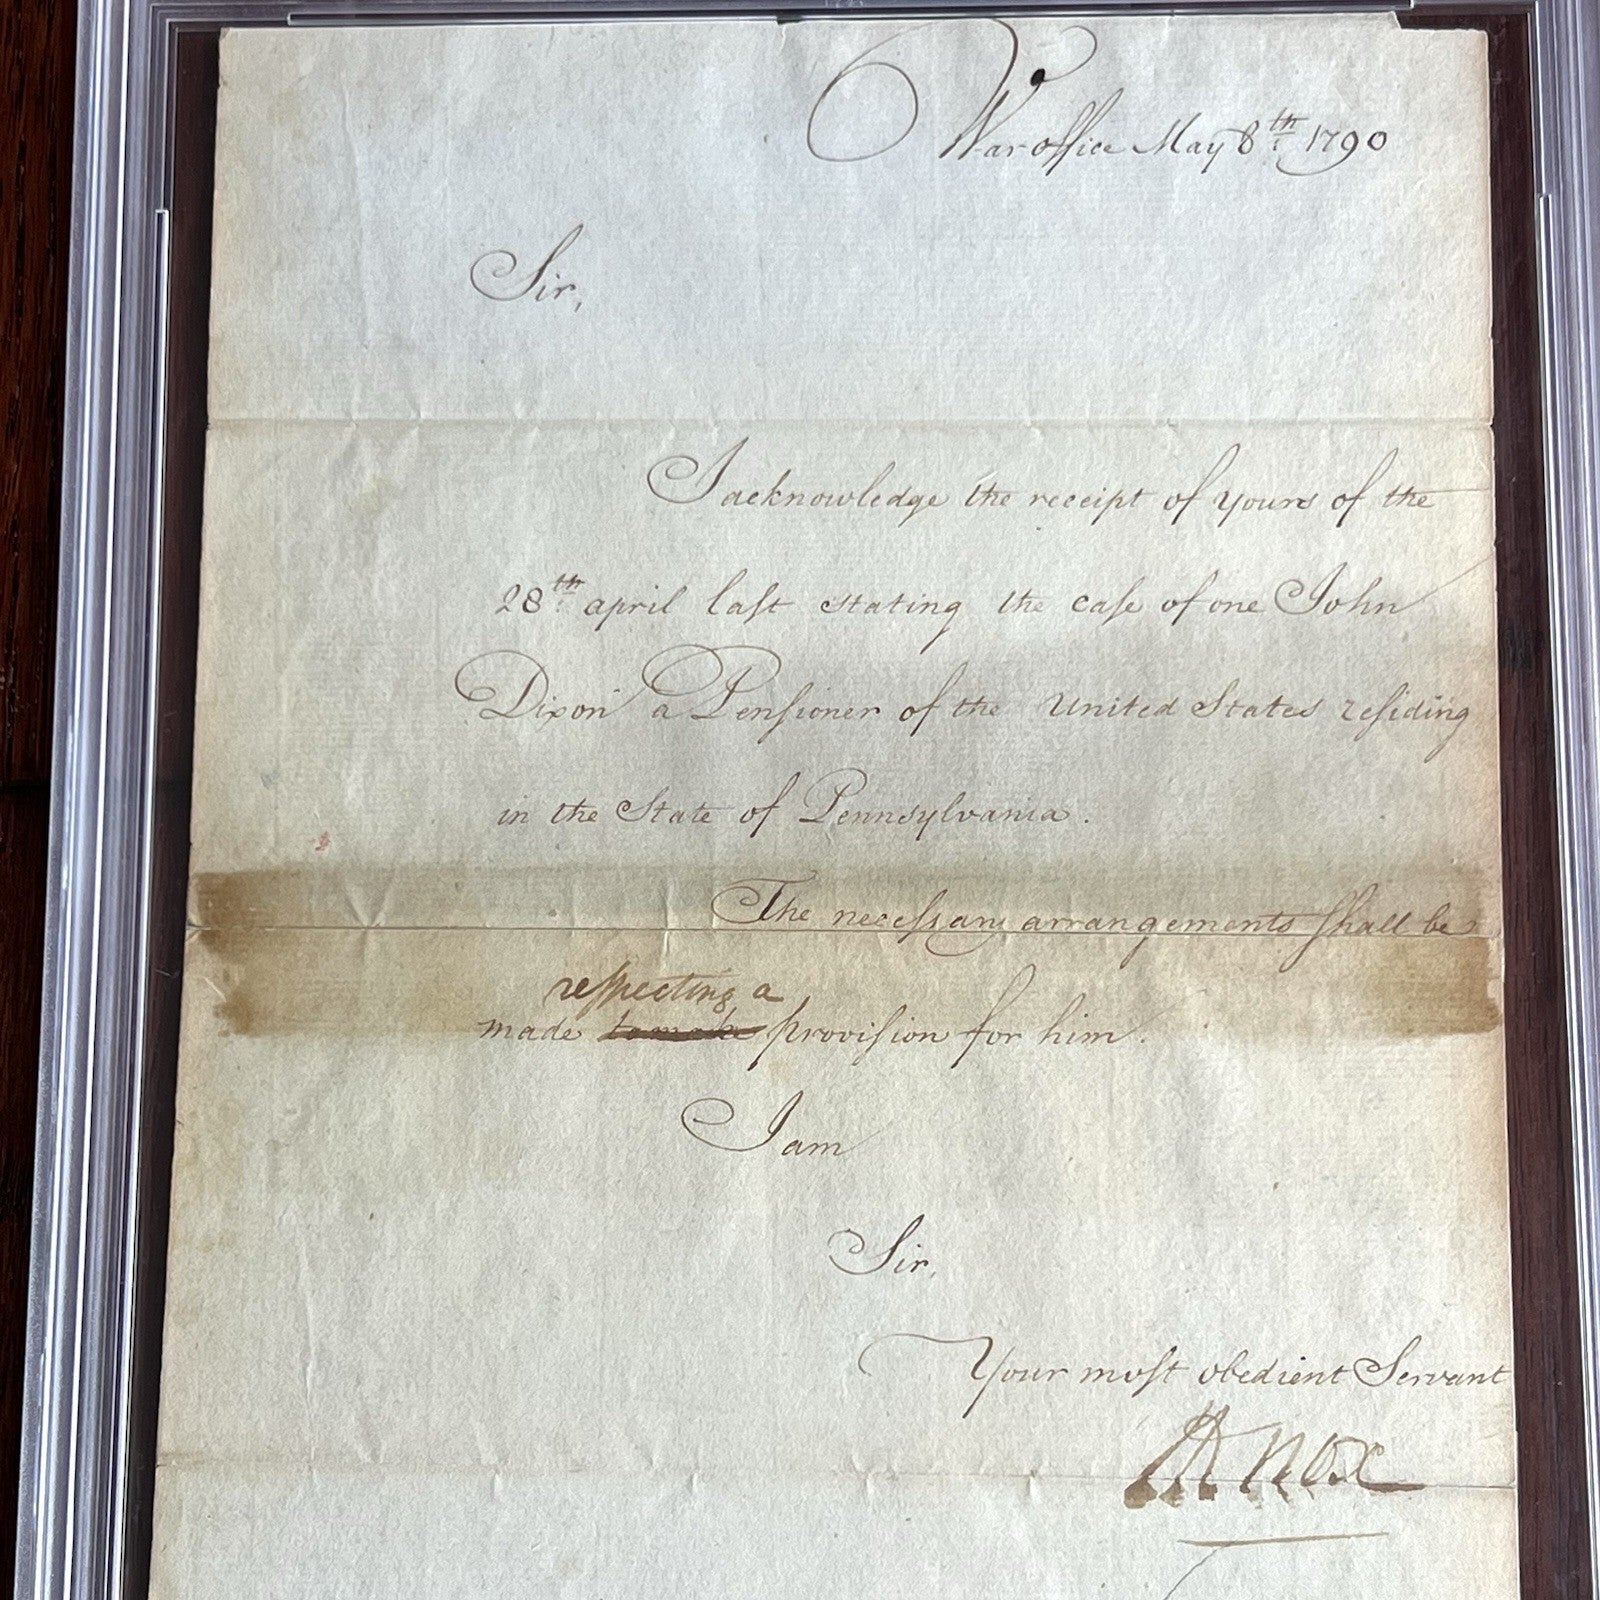 War office May 8th 1790
Sir,
I acknowledge the receipt of yours of the
28th april laſt stating the caſe of one John
Dixon a Penſioner of the United States reſiding
in the State of Pennsylvania.
The neceſsary arrangements ſhall be
reſpecting a
made to make proviſion for him.
I am
Sir,
Your moſt obedient Servant
HKnox